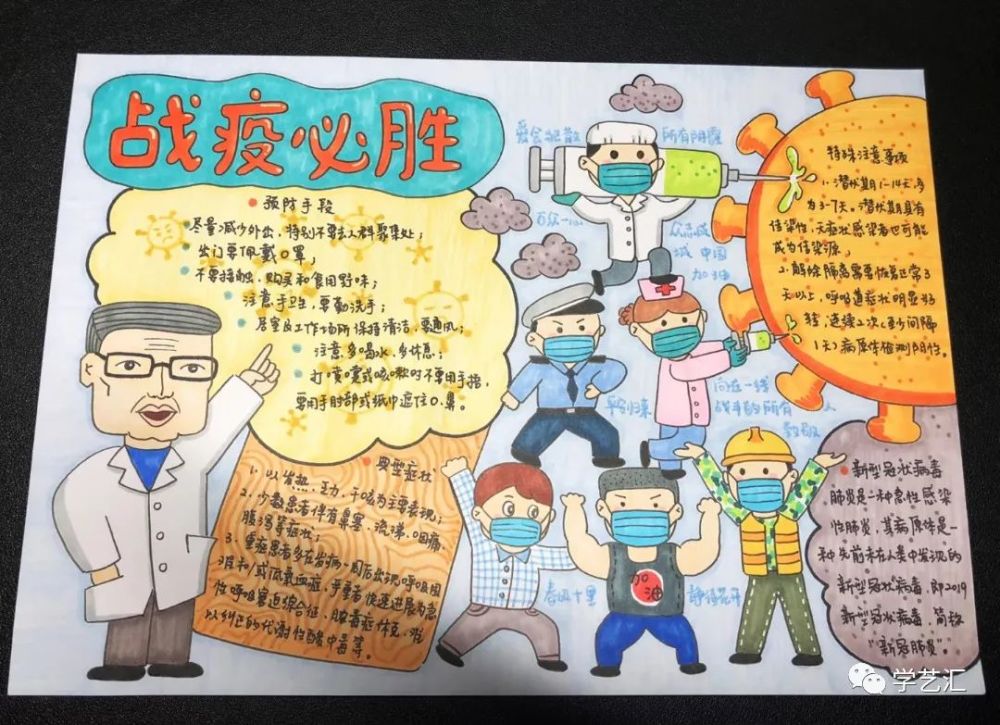 战疫必胜
预防手段
尽量减少外出，特别不要去人群聚集处；
出门要佩戴口罩；
不要接触，购买和食用野味；
注意手卫生，要勤洗手；
居室及工作场所保持清洁，要通风；
注意多喝水，多休息；
打喷嚏或咳嗽时不要用手捂，
要用手肘部或纸巾遮住口、鼻。
典型症状
1. 以发热、乏力、干咳为主要表现；
2. 少数患者伴有鼻塞、流涕、咽痛、
腹泻等症状；
3. 重症患者多在发病一周后出现呼吸困
难和/或低氧血症，严重者快速进展为急
性呼吸窘迫综合征、脓毒症休克、难
以纠正的代谢性酸中毒等。
爱会驱散
所有阴霾
万众一心
众志成
城 中国
加油
平安归来
向在一线
战斗的所有 人
致敬
春风十里
静待花开
加
油
特殊注意事项
1. 潜伏期1-14天，多
为3-7天。潜伏期具有
传染性，无症状感染者也可能
成为传染源；
2. 解除隔离需要恢复正常3
天以上，呼吸道症状明显好
转，连续2次（至少间隔
1天）病原体检测阴性。
新型冠状病毒
肺炎是一种急性感染
性肺炎，其病原体是一
种先前未在人类中发现的
新型冠状病毒，即2019
新型冠状病毒，简称
“新冠肺炎”。
学艺汇